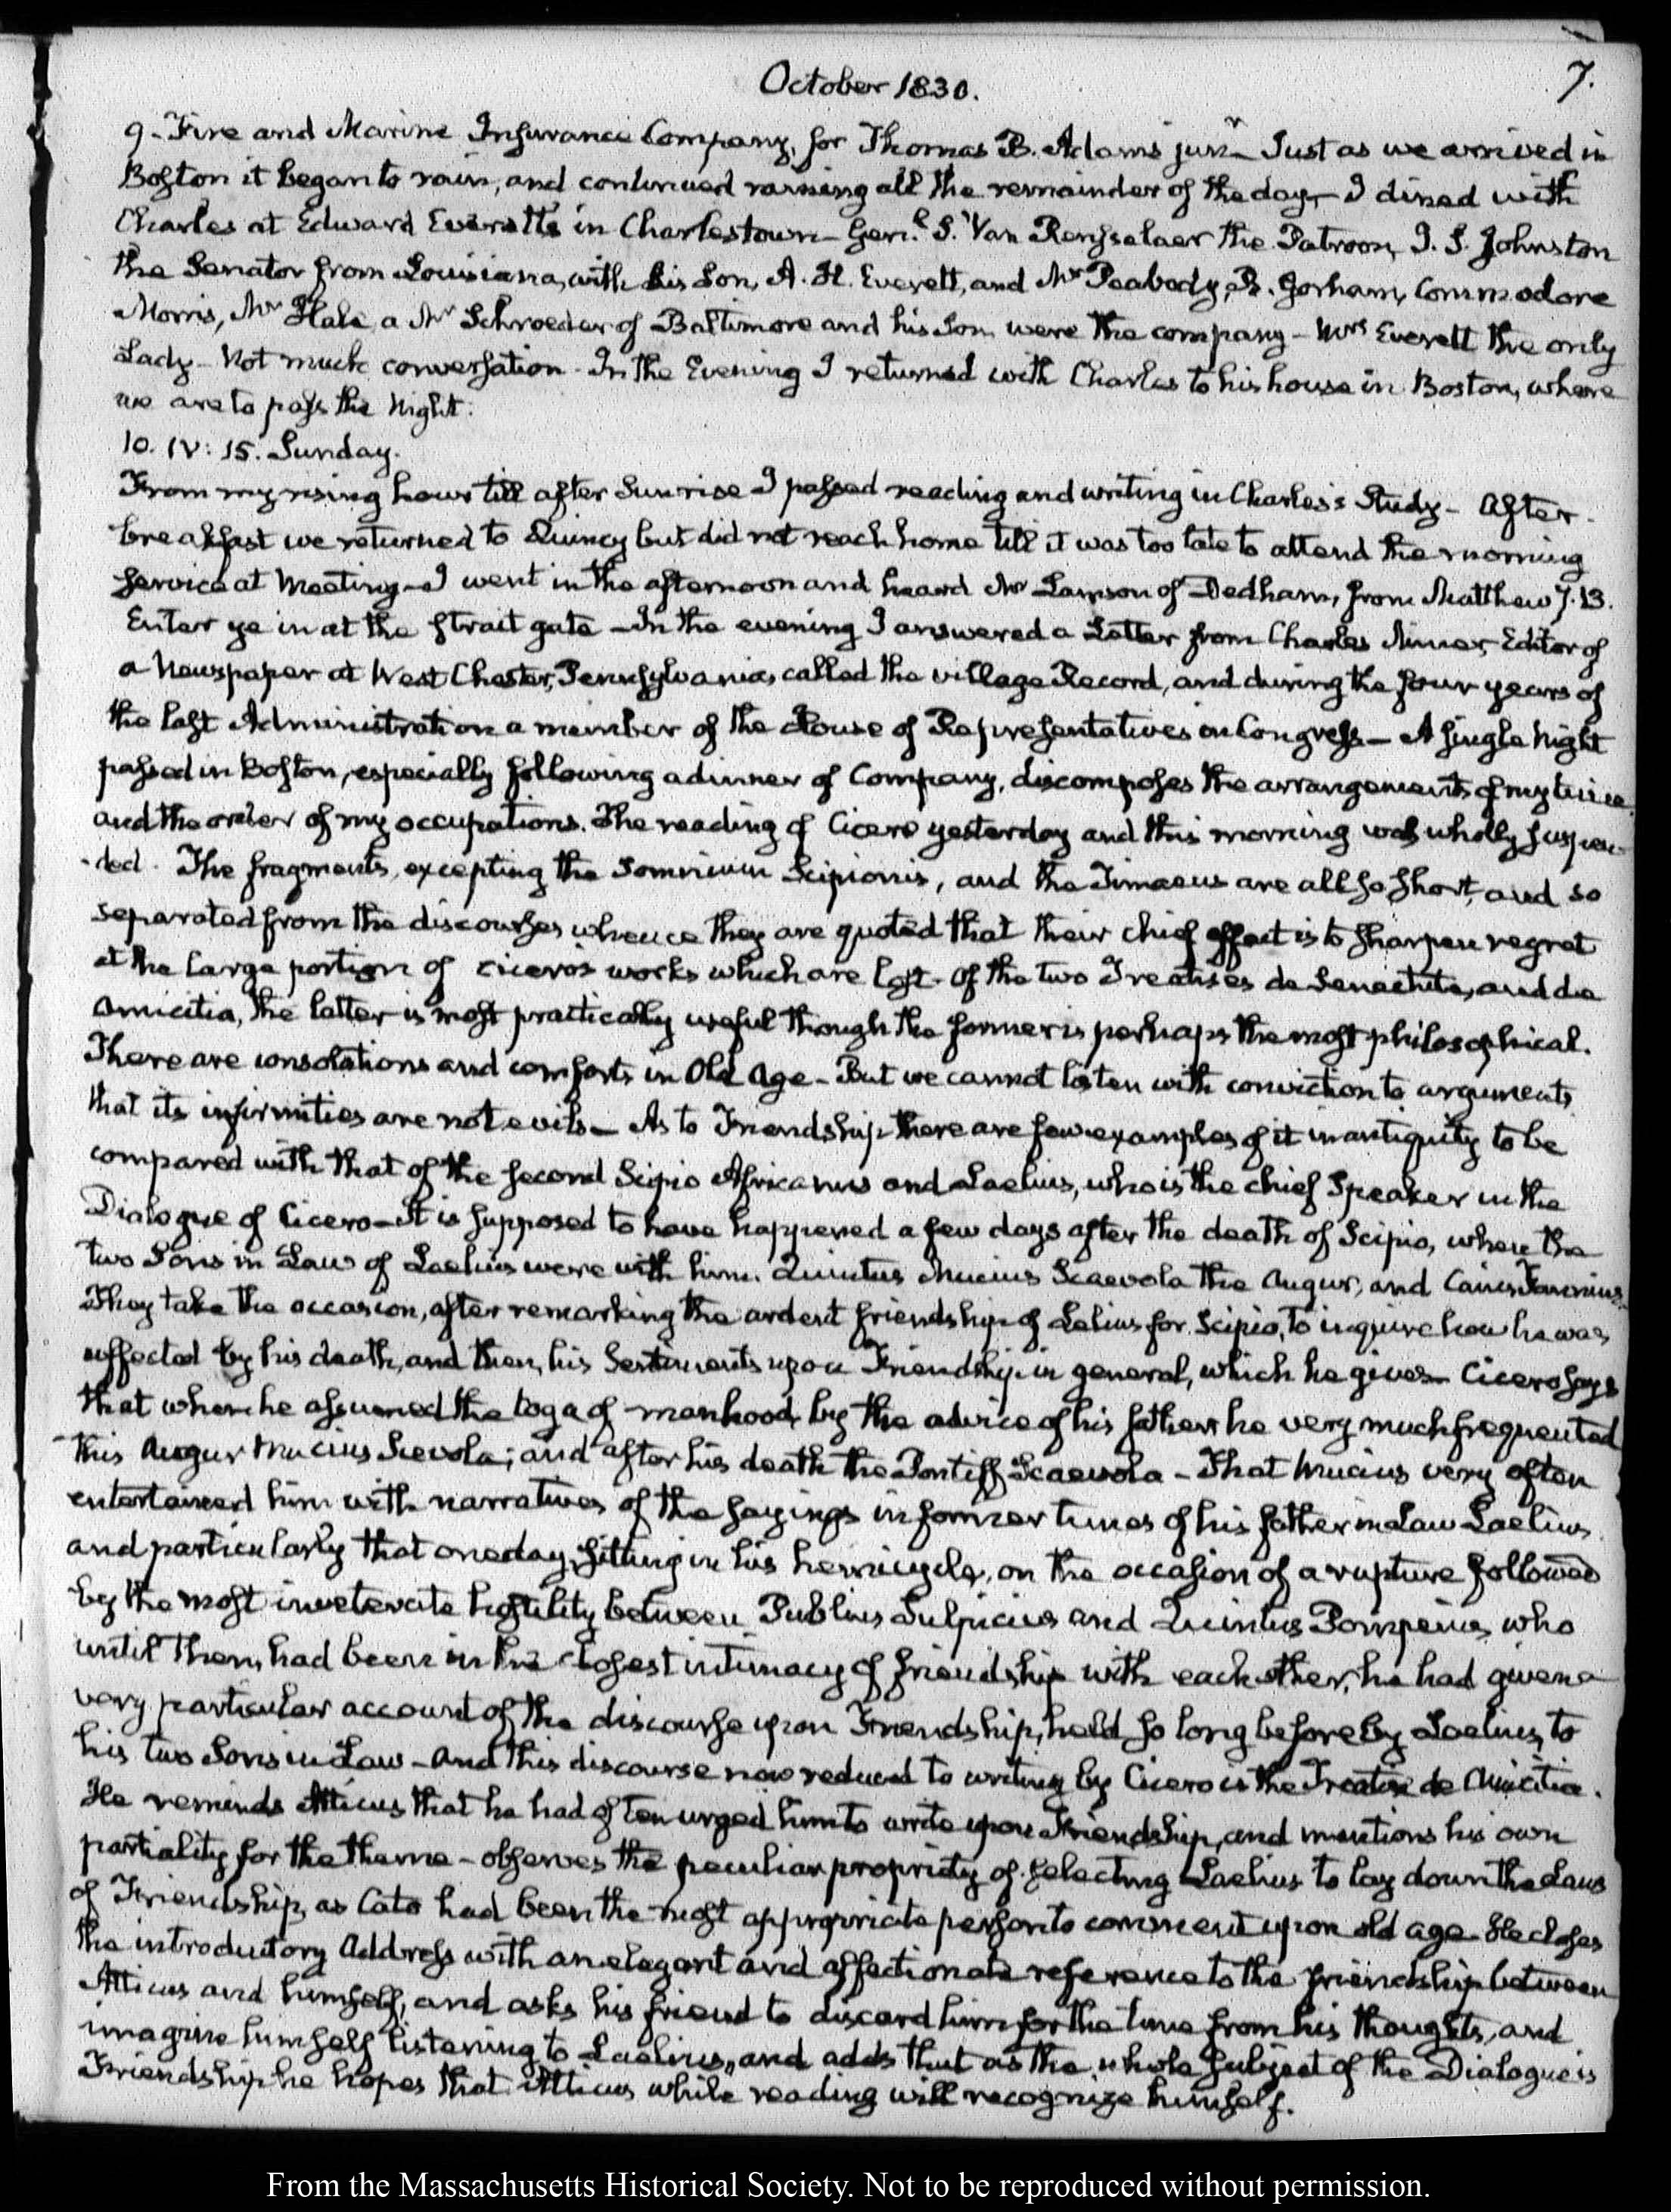 October 1830.
7.
9- Fire and Marine Insurance Company, for Thomas B. Adams junr_ Just as we arrived in
Boston it began to rain, and continued raining all the remainder of the day_ I dined with
Charles at Edward Everett's in Charlestown_ Genl. S. Van Rensselaer the Patroon, J. S. Johnston
the Senator from Louisiana, with his Son, A. H. Everett, and Mr Peabody, B. Gorham, Commodore
Morris, Mr Hale, a Mr Schroeder of Baltimore and his Son were the company- Mrs Everett the only
Lady- Not much conversation- In the Evening I returned with Charles to his house in Boston, where
we are to pass the Night.
10. IV: 15. Sunday.
From my rising hour till after Sunrise I passed reading and writing in Charles's Study- After
breakfast we returned to Quincy but did not reach home till it was too late to attend the morning
service at Meeting_ I went in the afternoon and heard Mr Lamson of Dedham, from Matthew 7.13.
Enter ye in at the strait gate_ In the evening I answered a Letter from Charles Miner, Editor of
a Newspaper at West Chester, Pennsylvania, called the village Record, and during the four years of
the last Administration a member of the House of Representatives in Congress_ A single Night
passed in Boston, especially following a dinner of Company, discomposes the arrangements of my time
and the order of my occupations. The reading of Cicero yesterday and this morning was wholly suspen-
-ded. The fragments, excepting the Somnium Scipionis, and the Timaeus are all so short, and so
separated from the discourses whence they are quoted that their chief effect is to sharpen regret
at the large portion of Cicero's works which are lost. Of the two Treatises de Senectute, and de
Amicitia, the latter is most practically useful though the former is perhaps the most philosophical.
There are consolations and comforts in Old Age- But we cannot listen with conviction to arguments
that its infirmities are not evils_ As to Friendship there are few examples of it in antiquity to be
compared with that of the second Scipio Africanus and Laelius, who is the chief Speaker in the
Dialogue of Cicero_ It is supposed to have happened a few days after the death of Scipio, when the
two Sons in Law of Laelius were with him. Quintus Mucius Scaevola the Augur, and Caius Fannius.
They take the occasion, after remarking the ardent friendship of Lelius for Scipio, to inquire how he was
affected by his death, and then, his Sentiments upon Friendship in general, which he gives_ Cicero says
that when he assumed the toga of manhood, by the advice of his father he very much frequented
this Augur Mucius Scevola; and after his death the Pontiff Scaevola- That Mucius very often
entertained him with narratives of the sayings in former times of his father in Law Laelius
and particularly that one day, sitting in his hemicycle, on the occasion of a rupture followed
by the most inveterate hostility between Publius Sulpicius and Quintus Pompeius, who
until then, had been in the closest intimacy of friendship with each other, he had given a
very particular account of the discourse upon Friendship, held so long before by Laelius, to
his two Sons in Law- and this discourse now reduced to writing by Cicero is the Treatise de Amicitia.
He reminds Atticus that he had often urged him to write upon Friendship, and mentions his own
partiality for the theme- observes the peculiar propriety of selecting Laelius to lay down the Laws
of Friendship, as Cato had been the most appropriate person to comment upon old age. He closes
the introductory Address with an elegant and affectionate reference to the friendship between
Atticus and himself, and asks his friend to discard him for the time from his thoughts, and
imagine himself listening to Laelius, and adds that as the whole subject of the Dialogue is
Friendship he hopes that Atticus while reading will recognize himself.
From the Massachusetts Historical Society. Not to be reproduced without permission.